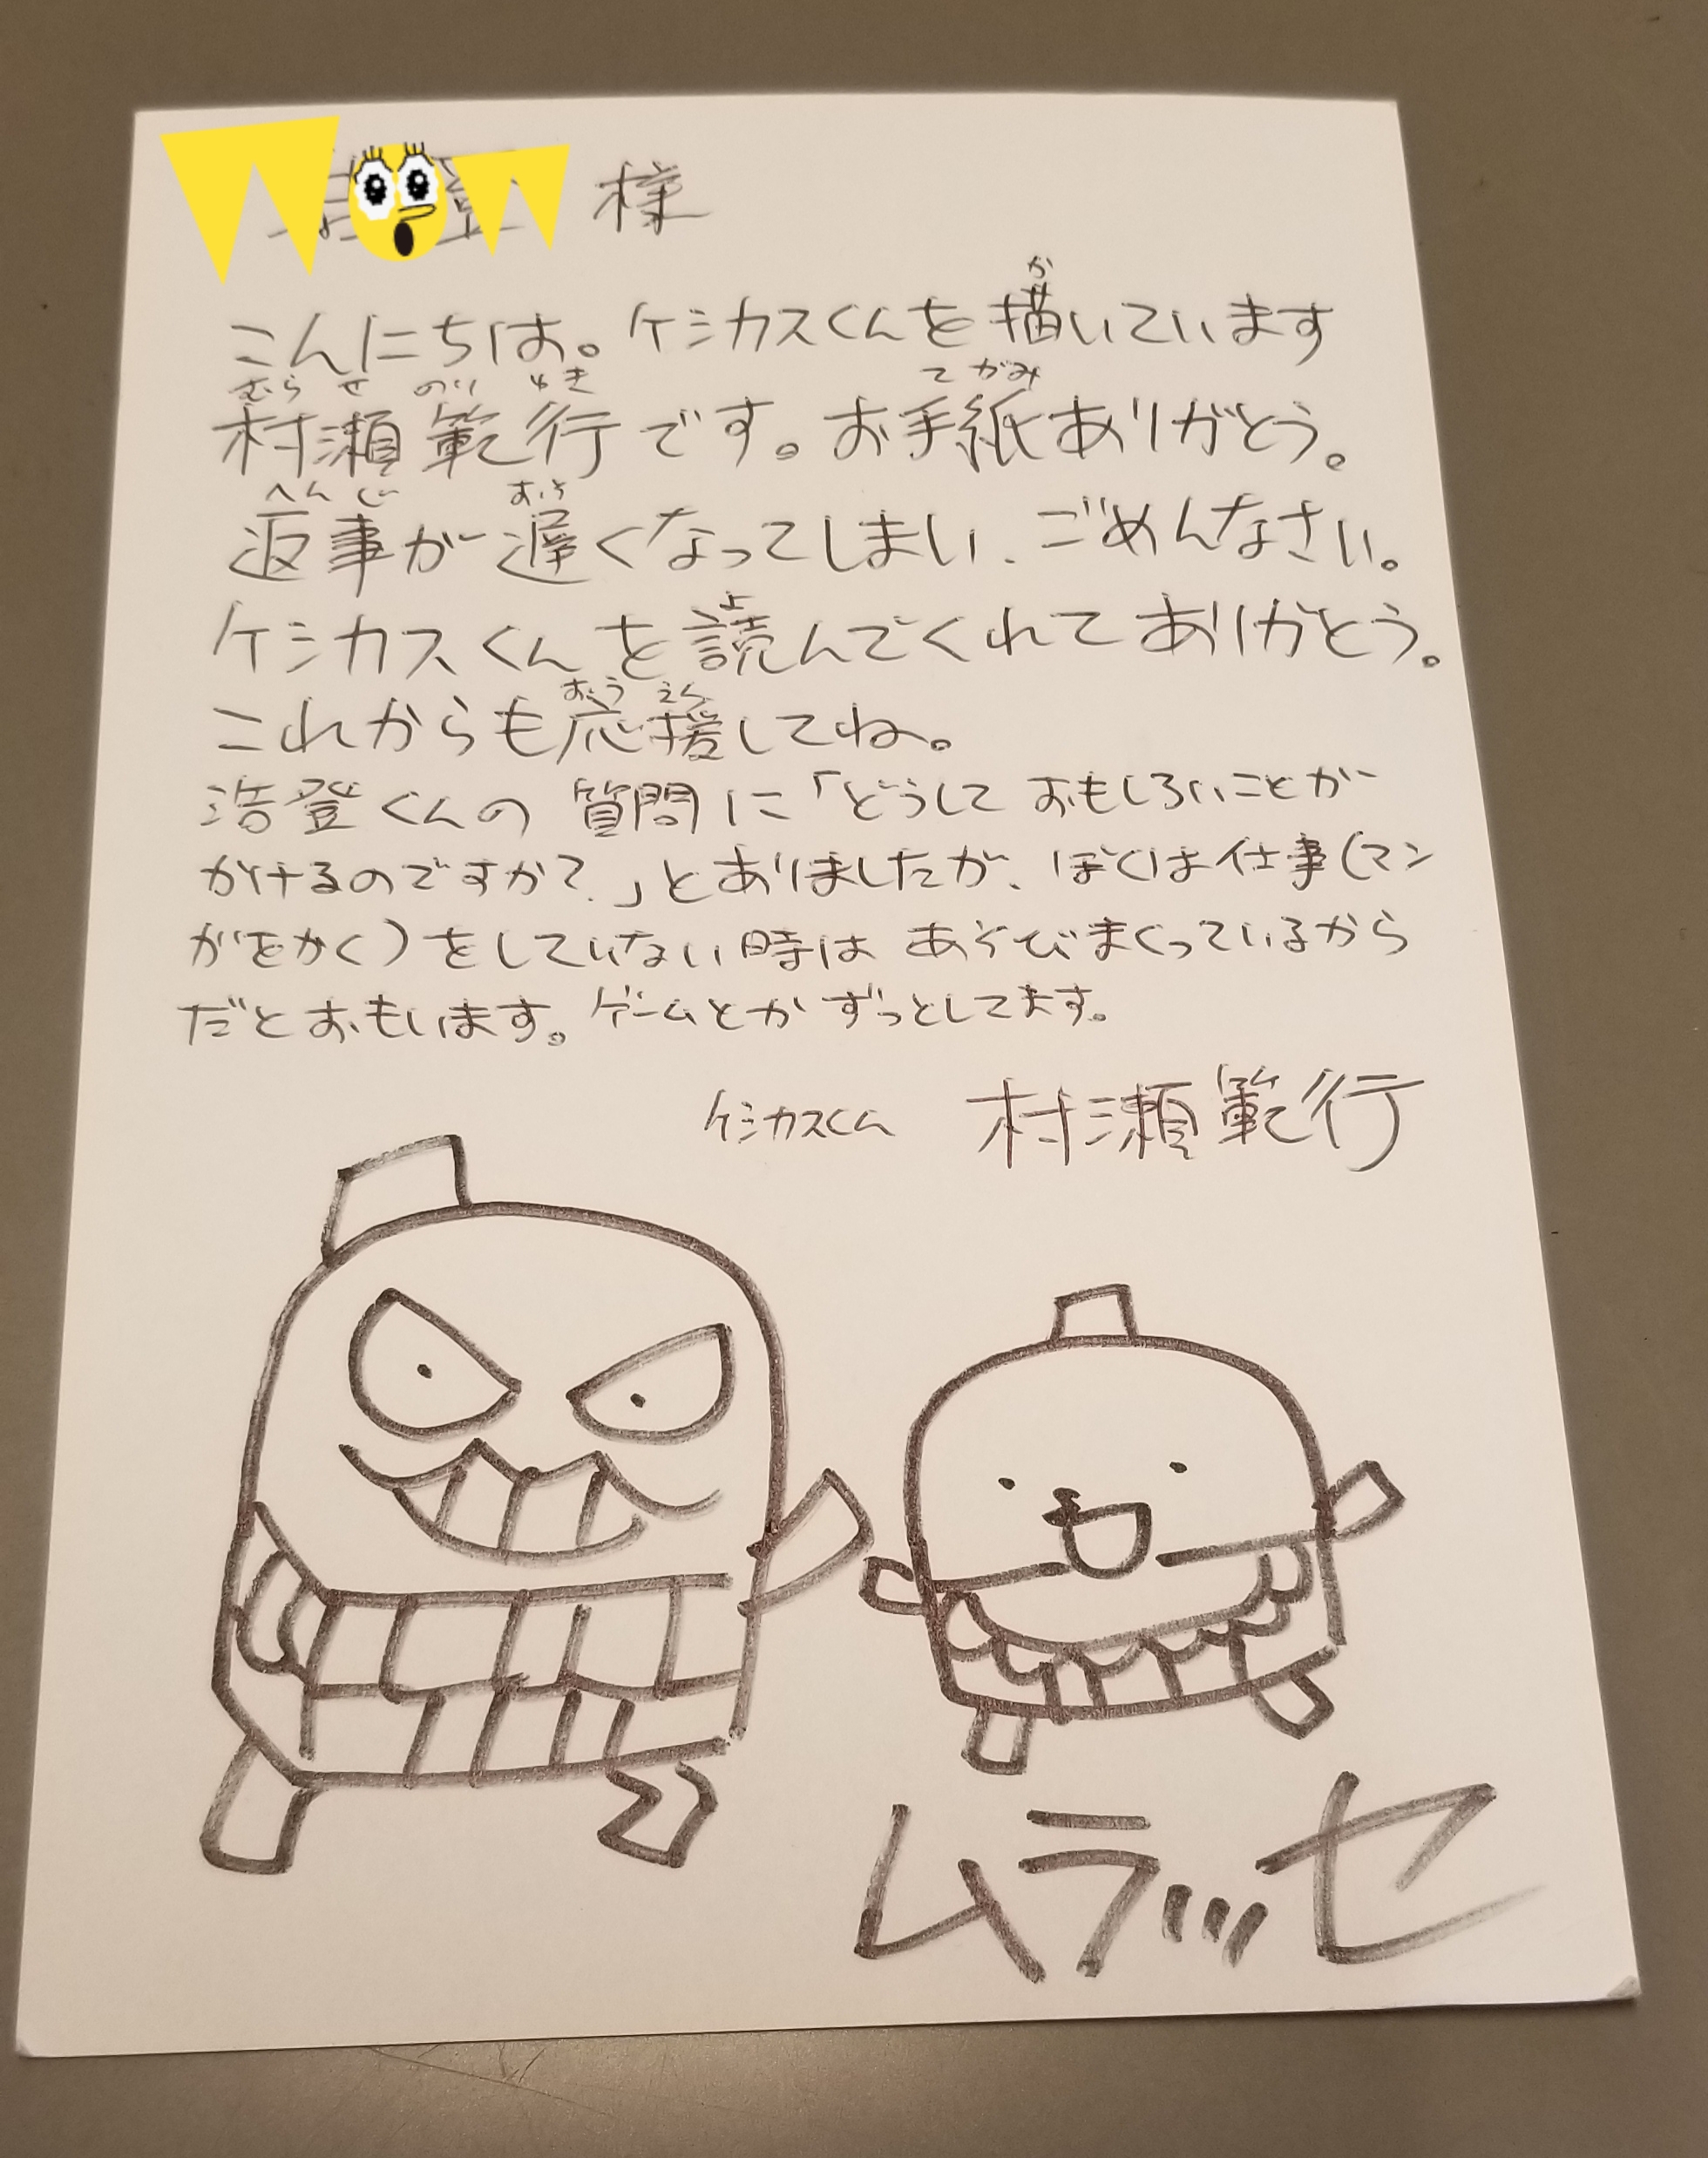 WOW 様
こんにちは。ケシカスくんを描いています
村瀬範行です。お手紙ありがとう。
返事が遅くなってしまい、ごめんなさい。
ケシカスくんを読んでくれてありがとう。
これからも応援してね。
浩登くんの 質問に「どうして おもしろいことが
かけるのですか?」とありましたが、ぼくは仕事(マン
がをかく)をしていない時は あそびまくっているから
だとおもいます。ゲームとか ずっとしてます。
ケシカスくん 村瀬範行
ムラッセ